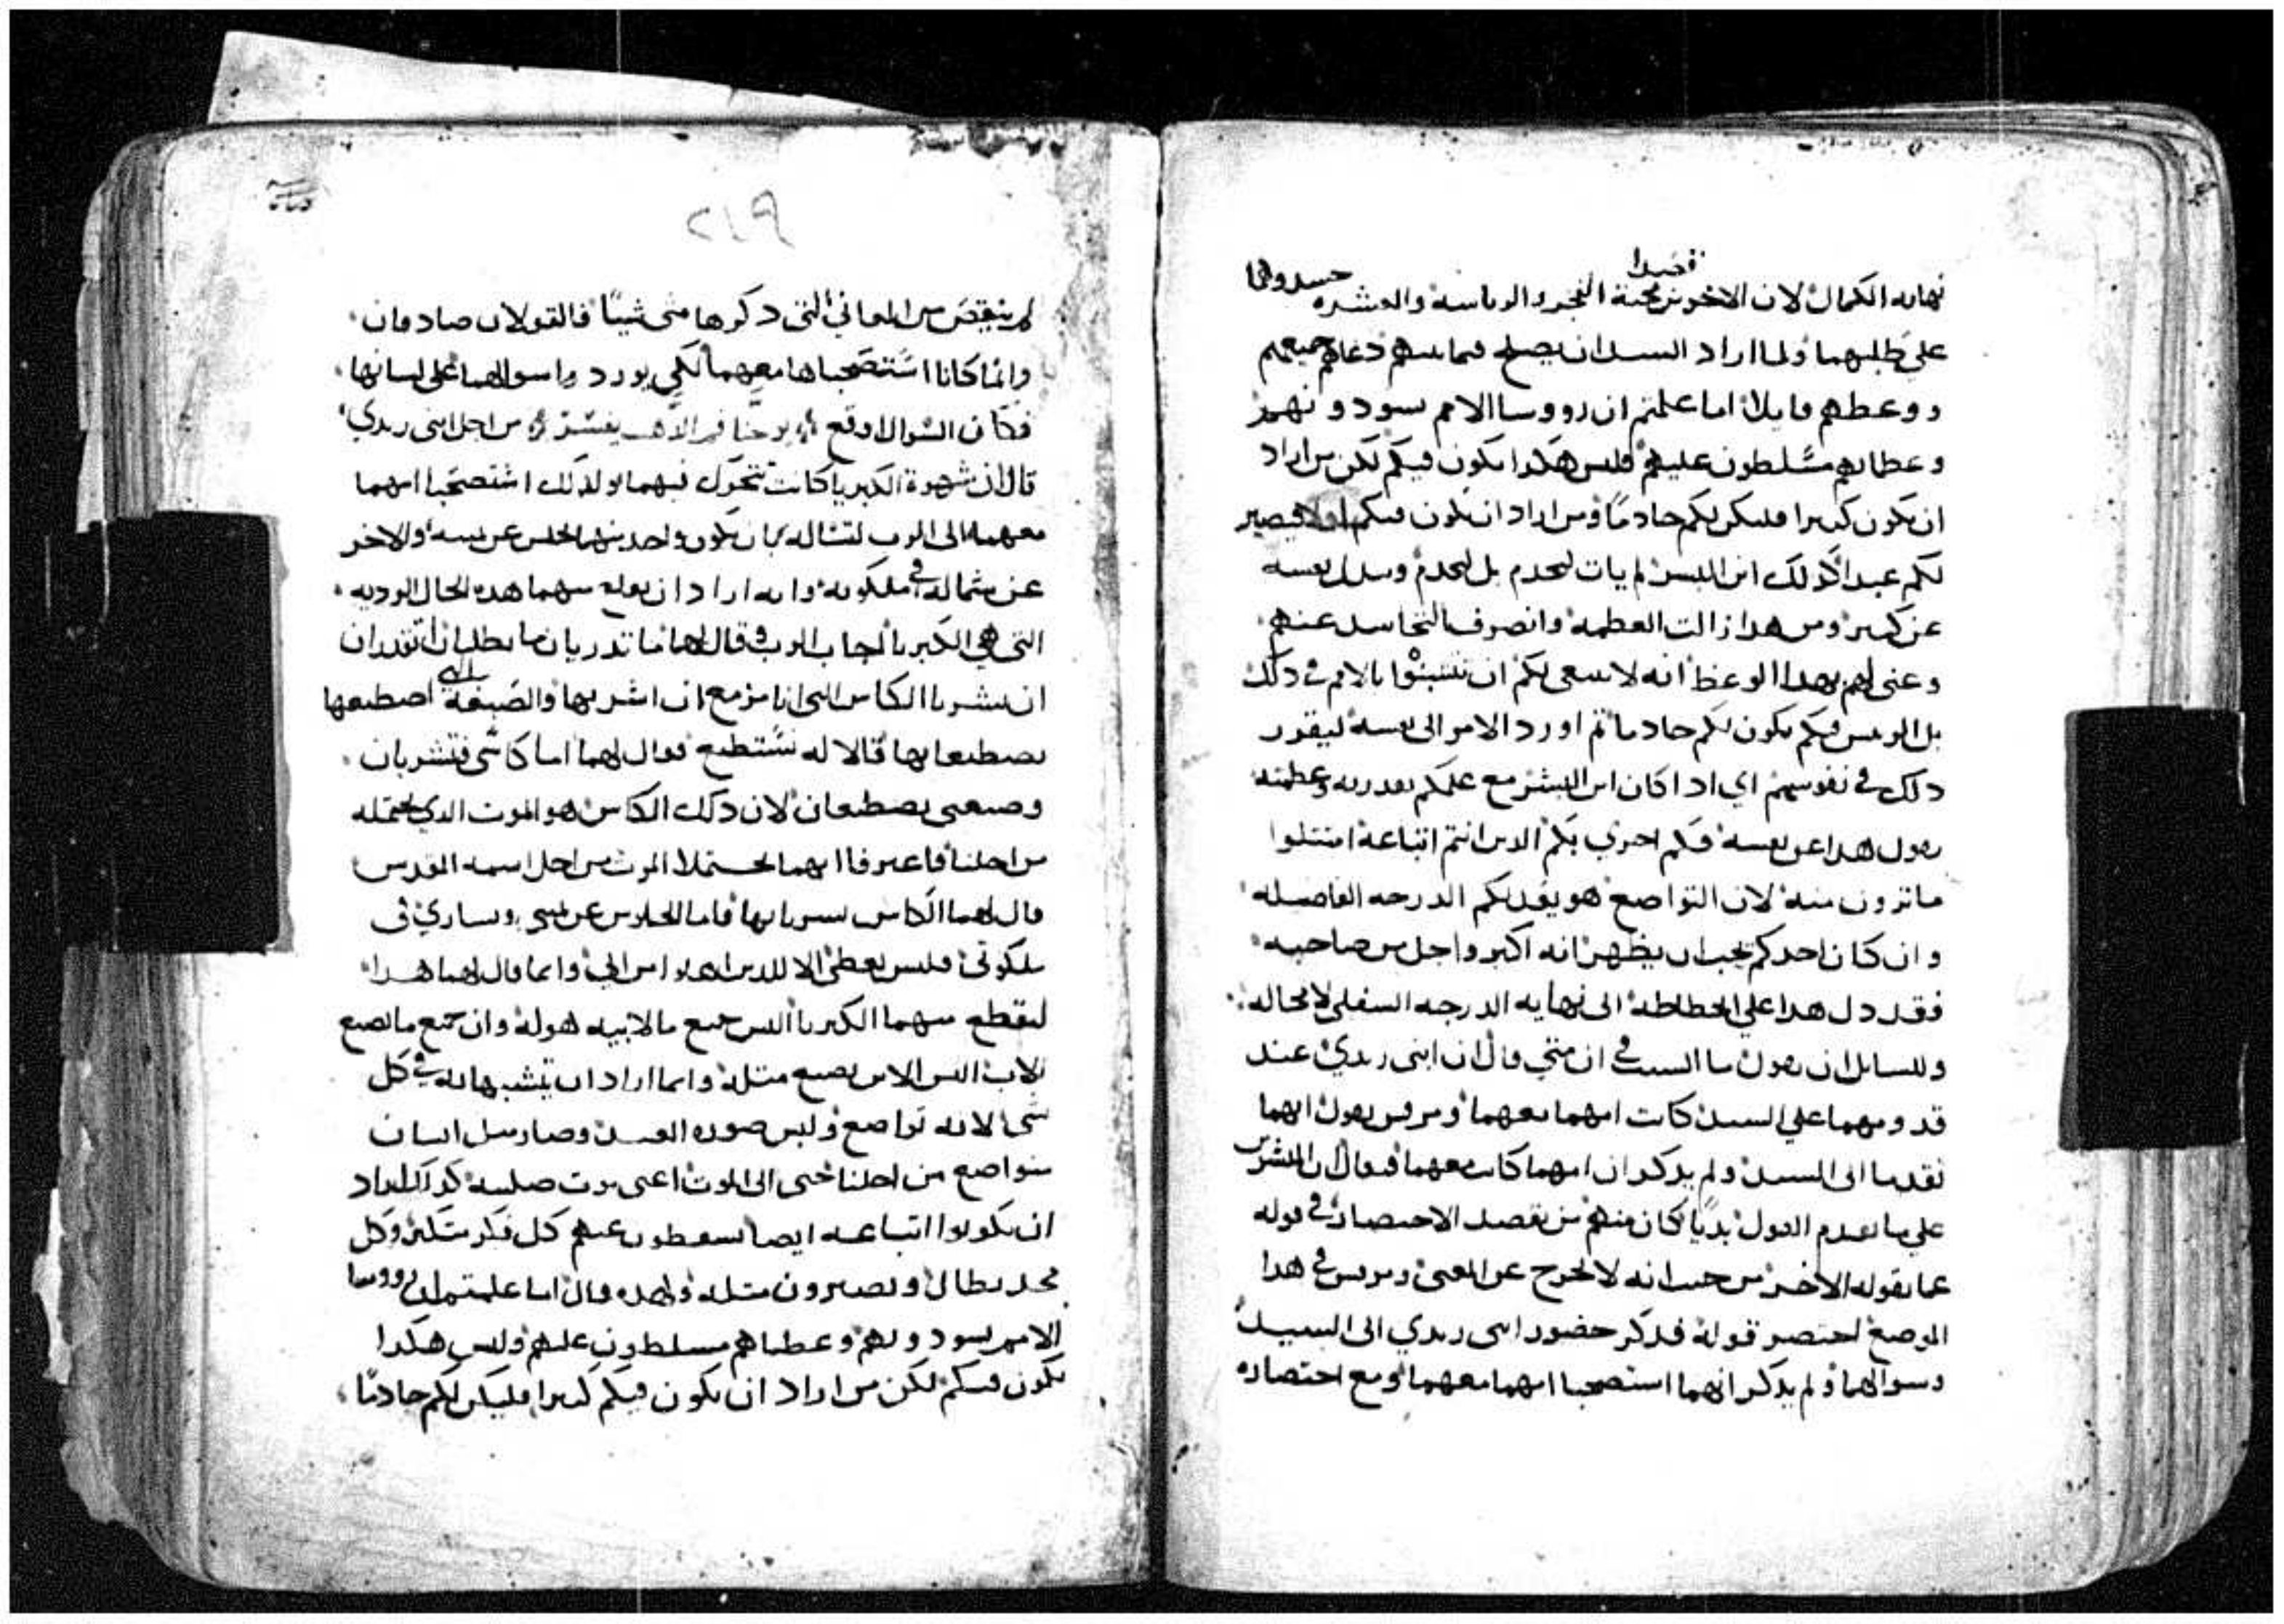 قصدا
نهايه الكمال لان الاخوين محبة الفجر والرياسه والعشره حسدوهما
علي طلبهما ولما اراد السيد ان يصلح فيما بينهم دعاهم جميعهم
ووعظهم قايلا اما علمتم ان رووسا الامم يسودونهم
وعظماهم مسلطون عليهم فليس هكدا يكون فيكم لكن من اراد
ان يكون كبيرا فليكن لكم خادما ومن اراد ان يكون فيكم اولا فيصير
لكم عبدا كذلك ابن البشر لم يات ليخدم بل ليخدم ويبدل نفسه
عن كثير ومن هدا زالت العظمه وانصرف التحاسد عنهم
وعني لهم بهدا الوعظ انه لا ينبغي لكم ان تتشبهوا بالامم في دلك
بل الريس فيكم يكون لكم خادما ثم اورد الامر الى نفسه ليقرر
دلك في نفوسهم اي ادا كان ابن البشر مع علمكم بقدرته وعظمته
يقول هدا عن نفسه فكم احرى بكم الدين انتم اتباعه امتثلوا
ما ترون منه لان التواضع هو يفيدكم الدرجه الفاضله
وان كان احدكم يجب ان يظهر انه اكبر واجل من صاحبه
فقد دل هدا علي انحطاطه الى نهايه الدرجه السفلى لا محاله
وللسايل ان يقول ما السبب في ان متي قال ان ابني زبدي عند
قدومهما علي السيد كانت امهما معهما ومرقس يقول انهما
تقدما الى السيد ولم يدكر ان امهما كانت معهما فيقال ان المبشرين
على ما تقدم القول بديا كان منهم من يقصد الاختصار في قوله
عما يقوله الاخر من حيث انه لا يخرج عن المعنى ومرقس في هدا
الموضع اختصر قوله فدكر حضور ابني زبدي الى السيد
وسوالهما ولم يدكر انهما استصحبا امهما معهما ومع اختصاره
٢١٩
لم ينقص من المعاني التي دكرها متى شيئا فالقولان صادقان
وانما كانا استصحباها معهما لكي يورد واسوالهما على لسانها
فكان السوال اوقع يوحنا فم الذهب يفسر من اجل ابني زبدي
قال ان شهوة الكبريا كانت تتحرك فيهما ولذلك استصحبا امهما
معهما الى الرب لتساله بان يكون واحد منهما يجلس عن يمينه والاخر
عن شماله في ملكوته وانه اراد ان يقلع منهما هده الحال الرديه
التي هي الكبريا اجاب الرب وقال لهما ما تدريان ما تطلبان اتقدران
ان تشربا الكاس التي انا مزمع ان اشربها والصبغة التي اصطبغها
تصطبغا بها قالا له نستطيع فقال لهما اما كاسي فتشربان
وصبغتي تصطبغان لان دلك الكاس هو الموت الدي يحتمله
من اجلنا فاعترفا انهما يحتملا الموت من اجل اسمه القدس
قال لهما الكاس تشربانها فاما الجلوس عن يميني ويساري في
ملكوتي فليس يعطى الا للدين اعدوا من ابي وانما قال لهما هدا
ليقطع منهما الكبريا اليس جميع ما لابيه هو له وان جميع ما يصنع
الاب اليس الابن يصنع مثله وانما اراد ان يتشبها به في كل
شي لانه تواضع ولبس صوره العبد وصار مثل انسان
متواضع من اجلنا حتى الى الموت اعني موت صليبه كدلك اراد
ان يكونوا اتباعه ايضا يسقطون عنهم كل فكر متكبر وكل
مجد بطال ويصيرون مثله ولهده قال اما علمتم ان رووسا
الامم يسودونهم وعظماهم مسلطون عليهم وليس هكدا
يكون فيكم لكن من اراد ان يكون فيكم كبيرا فليكن لكم خادما